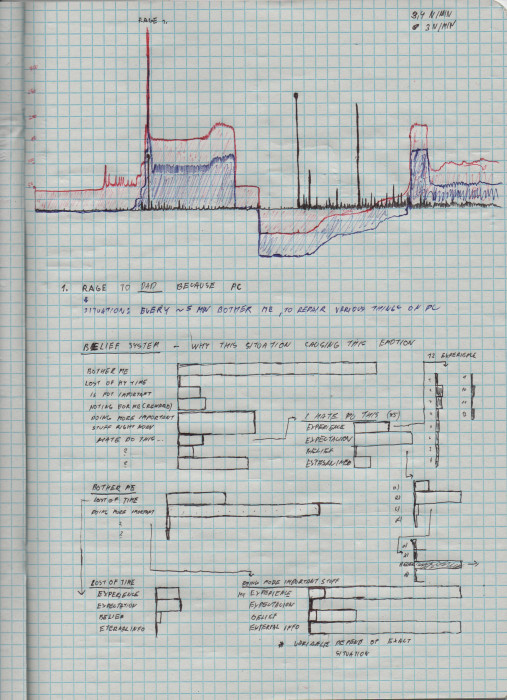 RAGE 1.
3,4 N/MIN
3 N/MIN
1. RAGE TO DAD BECAUSE PC
&
SITUATIONS EVERY ~5 MIN BOTHER ME, TO REPAIR VARIOUS THINGS OF PC
BELIEF SYSTEM - WHY THIS SITUATION CAUSING THIS EMOTION
BOTHER ME
LOST OF MY TIME
IS NOT IMPORTANT
NOTING FOR ME (REWARD)
DOING MORE IMPORTANT
STUFF RIGHT NOW
HATE DO THIS...
?
I HATE DO THIS
EXPERIENCE
EXPECTACION
BELIEF
EXTERNAL INFO
12 EXPERIENCE
BOTHER ME
LOST OF TIME
DOING MORE IMPORTANT
?
LOST OF TIME
EXPERIENCE
EXPECTATION
BELIEF
ETERNAL INFO
DOING MORE IMPORTANT STUFF
MY EXPERIENCE
EXPECTACION
BELIEF
EXTERNAL INFO
* VARIABLE DEPEND OF EXACT
SITUATION